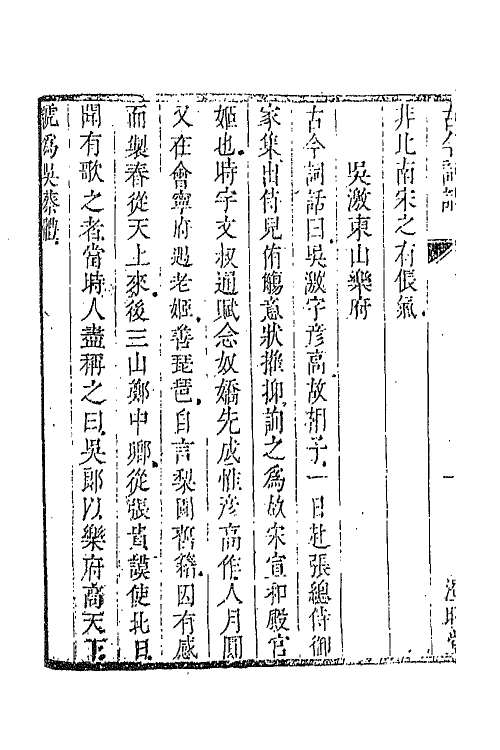 古今詞話
一
非比南宋之有倀氣
吳激東山樂府
古今詞話曰吳激字彥高故相子一日赴張總侍御
家集出侍兒侑觴意狀摧抑詢之為故宋宣和殿宮
姬也時宇文叔通賦念奴嬌先成惟彥高作人月圓
又在會寧府遇老姬善琵琶自言梨園舊籍因有感
而製春從天上來後三山鄭中卿從張貴謨使北日
聞有歌之者當時人盡稱之曰吳郎以樂府高天下
號為吳蔡體